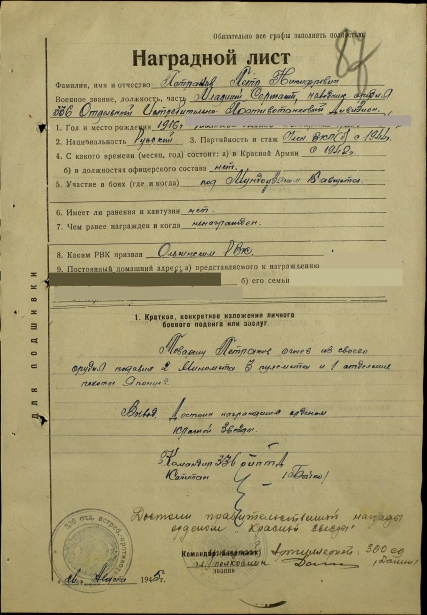 Обязательно все графы заполнить полностью.
84
Наградной лист
Фамилия, имя и отчество Петраков Петр Никифорович
Военное звание, должность, часть Младший Сержант, наводчик орудия
336 Отдельной Истребительно Противотанковой Дивизион.
1. Год и место рождения 1916г.
2. Национальность Русский 3. Партийность и стаж Член ВКП(б) с 1942г.
4. С какого времени (месяц, год) состоит: а) в Красной Армии С 1942г.
б) в должности офицерского состава нет.
5. Участие в боях (где и когда) под августа.
6. Имеет ли ранения и контузии нет.
7. Чем ранее награжден и когда ненагражден.
8. Каким РВК призван РВК
9. Постоянный домашний адрес: а) представляемого к награждению
б) его семьи
для подшивки
1. Краткое, конкретное изложение личного
боевого подвига или заслуг.
Товарищ Петраков огнем из своего
орудия подавил 2 Миномета 3 пулемета и 1 отделение
пехоты Японцев.
Вывод: Достоин награждения орденом
Красной Звезды.
Командир 336 оиптд
Капитан /Бачко/
Достоин правительственной награды
орденом "Красной звезды"
Командующий Артиллерией 300 сд
п/полковник
звание
августа 1945г.